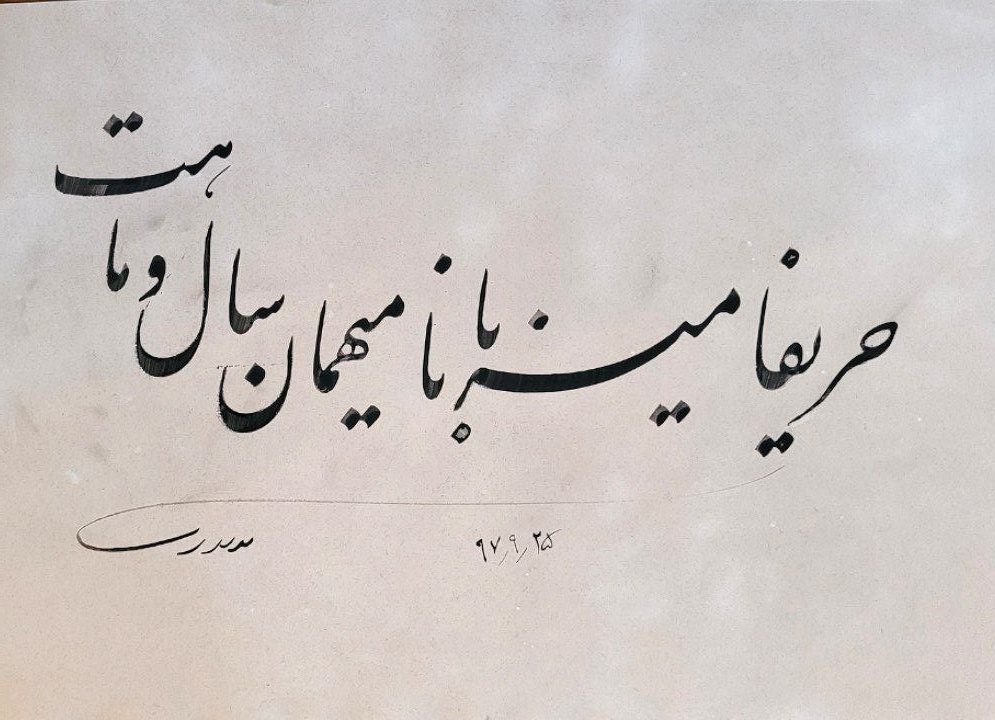 حریفا میزبانا میهمان سال و ماهت
۹۷/۹/۲۵